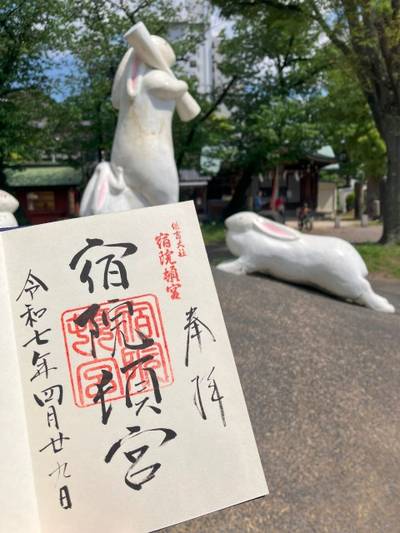 奉拝
住吉大社
宿院頓宮
宿院頓宮
宿院頓宮
令和七年四月廿九日